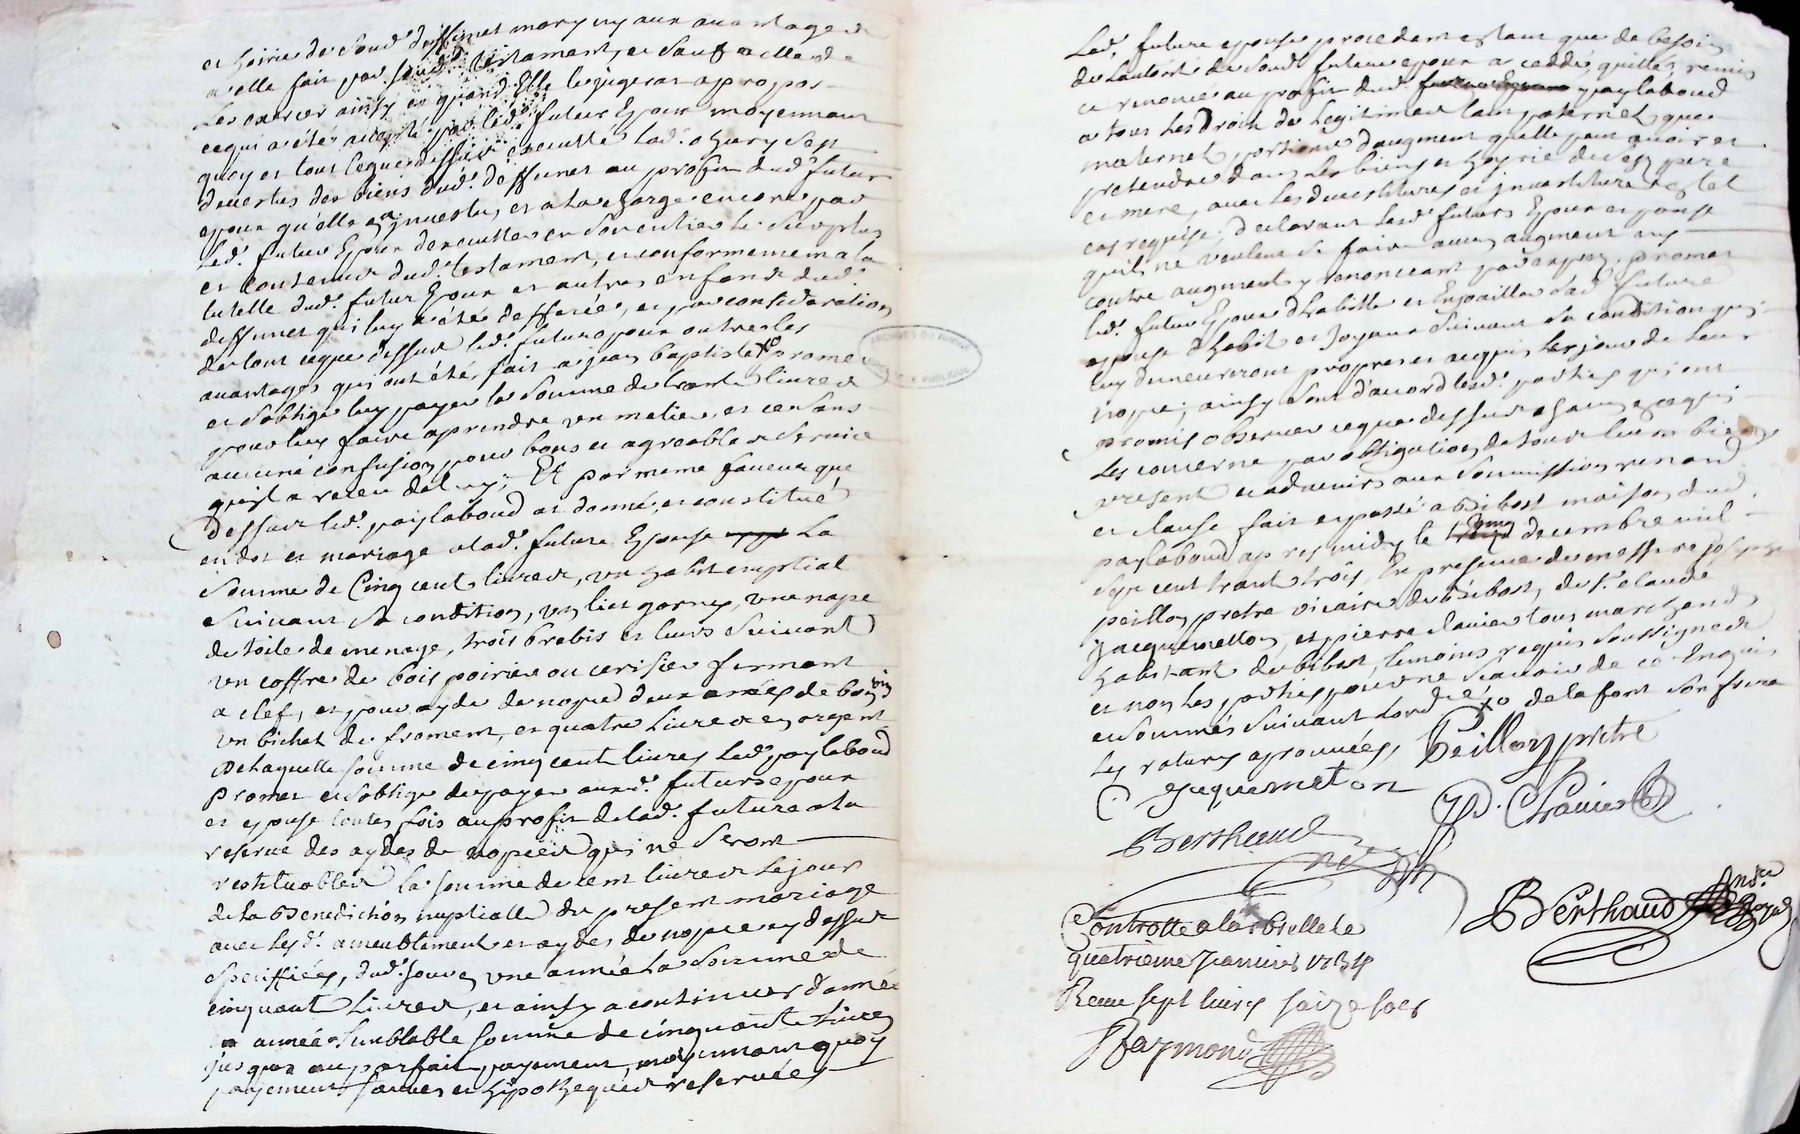 et hoirie de soud. deffunct mary ny aux avantages
a elle fait par soud. testament, et sauf a elle de
Les exercer ainsy et quand Elle le jugerat a propos
ce qui a été accepté par led. futur Epoux moyennant
quoy et tout ce que dessus executté lad. Chary sest
devestus des biens dud. deffunct au profit dud. futur
epoux qu'elle en a investus, et a la charge encore par
led. futur Epoux dexecutter en son entier le surplus
et contenus dud. testament, et conformement a la
tutelle dud. futur Epoux et autres enfans dud.
deffunct qui luy a été defferée, et par consideration
de tout ce que dessus led. futur epoux outre les
avantages qui ont été fait a jean baptiste promet
et soblige luy payer la somme de trante livres
pour luy faire aprendre un metier, et ce sans
aucune confusion pour bons et agreables service
quil a receu de luy; Et par meme faveur que
dessus led. paylaboud at donné, et constitué
en dot et mariage a lad. future Epouse La
somme de Cinq cent livres, un habit nuptial
suivant sa condition, un lict garny, une nape
de toile de menage, trois brebis et leurs suivant
un coffre de bois poirier ou cerisier fermant
a clef, et pour ayde de nopce deux anées de bon vin
un bichet de froment, et quatre livres en argent
De laquelle somme de cinq cent livres led. paylaboud
promet et soblige de payer aux d. futurs epoux
et epouse toutes fois au profit de lad. future a la
reserve des aydes de nopces qui ne seront
restituables la somme de cent livres le jour
de la Benediction nuptialle du present mariage
avec les d. ameublement et aydes de nopce cy dessus
speciffiées, dud. jour en une année la somme de
cinquant livres, et ainsy a continuer d'année
en année semblable somme de cinquante livres
jusques au parfait payement, moyennant quoy
payement sauves et hipotheques reservées
Lad. future epouse procedant en tant que de besoin
de lautorité de soud. futur epoux a ceddé, quitté, remis
et renoncé au profit dud. paylaboud
a tous les Droit de Legitimes tant paternel, que
maternel, portions d'augment qu'elle peut avoir et
pretendre dans les biens et hoyrie de ses pere
et mere, avec les devestitures et investitures en tel
cas requise; declarant lesd. futurs Epoux et epouse
quil ne veulent se faire aucun augment ny
contre augment y renonceant par exprez. promet
led. futur Epoux d'habiller et Enjoailler sad. future
epouse d'habit et Joyaux suivant sa condition qui
luy demeureront propres et acquis les jour de leur
nopce; ainsy sont d'accord lesd. parties qui ont
promis observer ce que dessus chacun en ce qui
les concerne par obligation de tous leurs biens
present et advenirs aux soumission renond.
et clause fait et passé a Bibost maison dud.
paylaboud apres midy le decembre mil
sept cent trante trois, En presence de messire joseph
peillon pretre vicaire de bibost, de sr. claude
Jacquemetton, et pierre chanier tous marchands
habitant de bibost, temoins requis soussignes
et non les parties pour ne scavoir de ce Enquis
et sommés suivant Lordce. de la font son frere
Les ratures aprouvées,
Peillon pretre
Jacquemeton
P. Chanier
Berthaud
Berthaud
Controllé a Larbrelle le
quatrieme Janvier 1734
Receu sept livres saize sols
Raymond